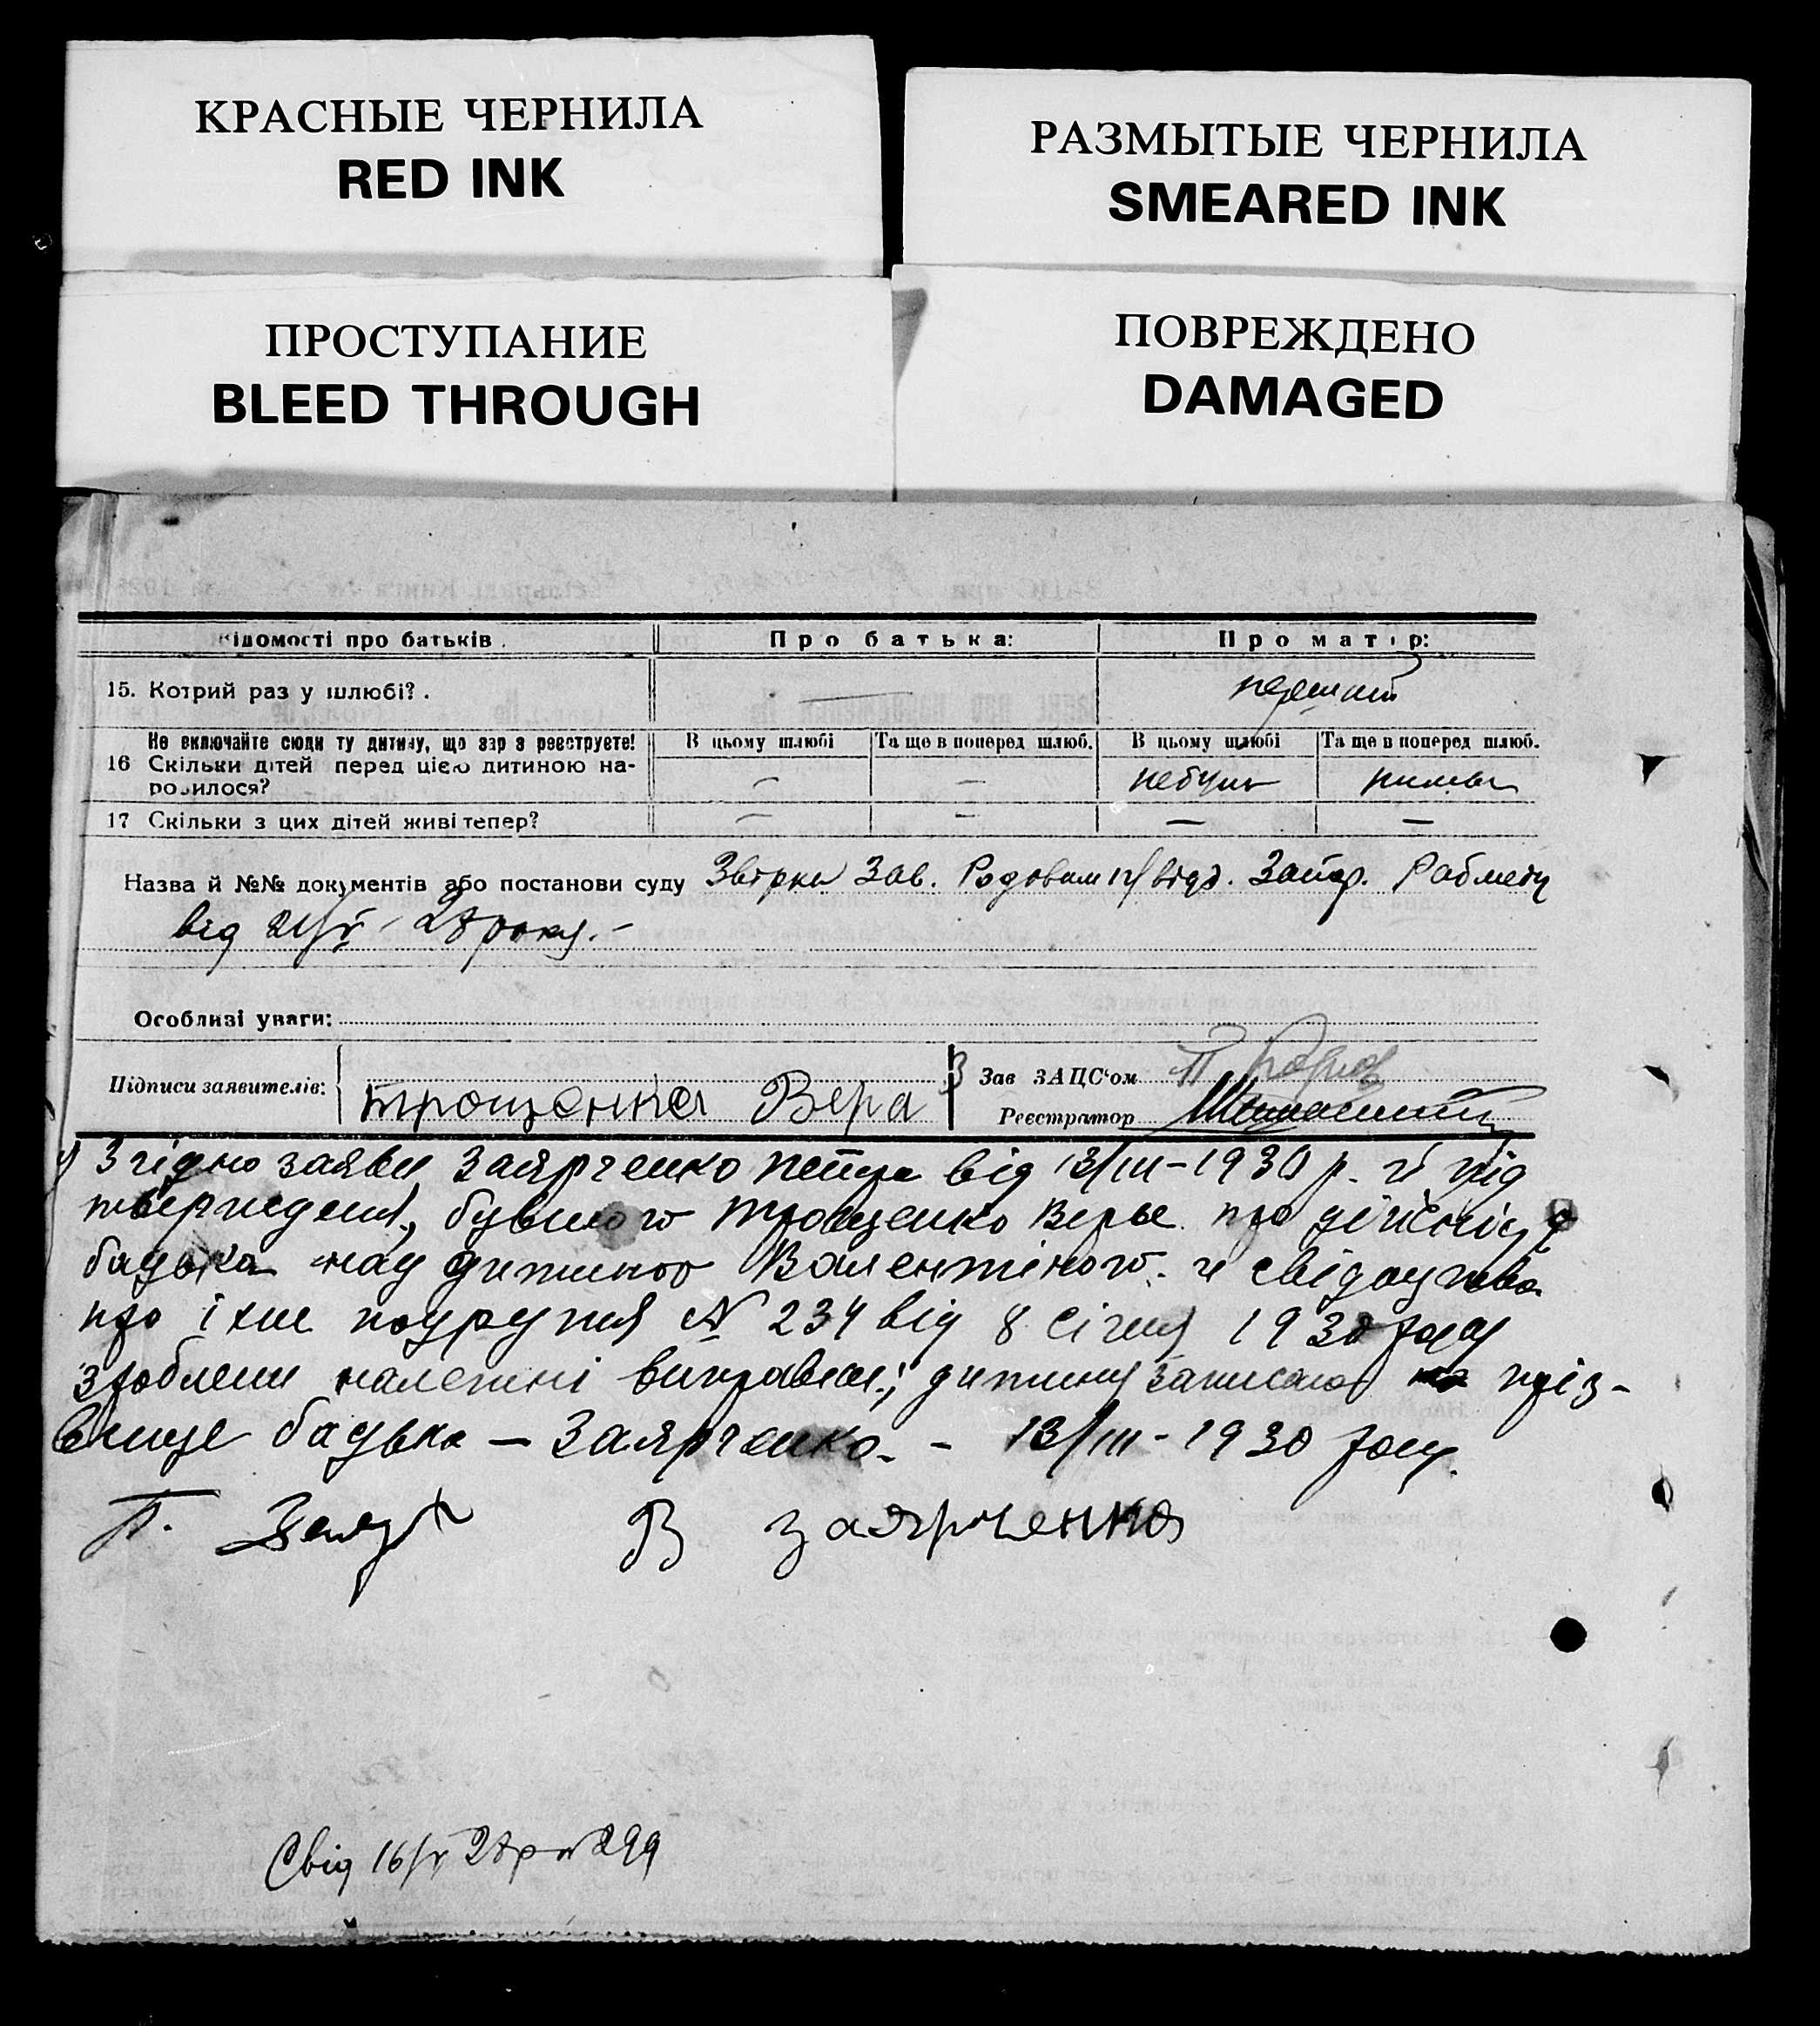 КРАСНЫЕ ЧЕРНИЛА
RED INK
РАЗМЫТЫЕ ЧЕРНИЛА
SMEARED INK
ПРОСТУПАНИЕ
BLEED THROUGH
ПОВРЕЖДЕНО
DAMAGED
ідомості про батьків.
Про батька:
Про матір:
15. Котрий раз у шлюбі?.
—
перший
Не включайте сюди ту дитину, що зараз реєструєте!
В цьому шлюбі
Та ще в поперед шлюб.
В цьому шлюбі
Та ще в поперед шлюб.
16 Скільки дітей перед цією дитиною на-
родилося?
—
—
небуло
17 Скільки з цих дітей живі тепер?
—
—
—
—
Назва й №№ документів або постанови суду Звірки Зав. відд. Запор.
від 21/V - 28 року. -
Особливі уваги:
Підписи заявителів:
Трощенка Вера
Зав ЗАЦС'ом
Реєстратор
Згідно заяви Заярченко Петра від 13/III-1930 р. й під
твердження, бувшою Трощенко Верье про дійсність
бадька над дитиною Валентіною. й свідоцтва
про їхне подружжя № 234 від 8 січня 1930 року
зроблени належні виправки; дитину записано на пріз-
вище бадька — Заярченко. - 13/III-1930 року.
П. Заяр
В заярченко
Свід 16/V 28р № 299